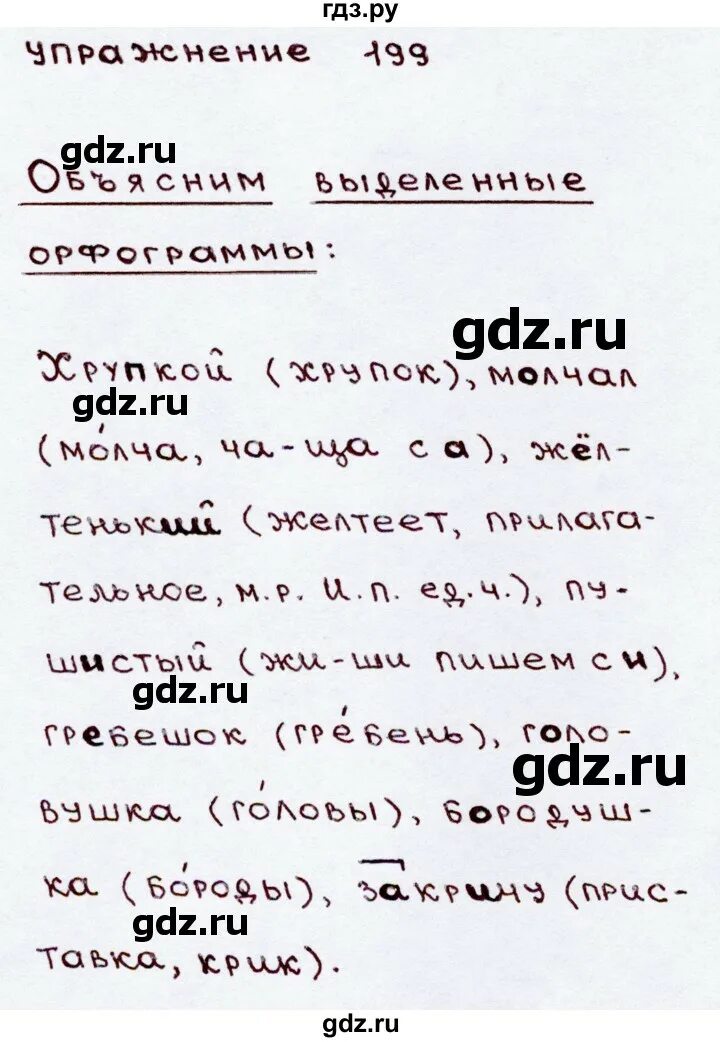 гдз.ру
упражнение 199
gdz.ru
Объясним выделенные
орфограммы:
gdz.ru
Хрупкой (хрупок), молчал
gdz.ru
(мо́лча, ча-ща с а), жёл-
тенький (желтеет, прилага-
тельное, м.р. И.п. ед.ч.), пу-
шистый (жи-ши пишем с и),
gdz.ru
гребешок (гре́бень), голо-
gdz.ru
вушка (го́ловы), бородуш-
ка (бо́роды), закричу (прис-
gdz.ru
тавка, крик).
gdz.ru